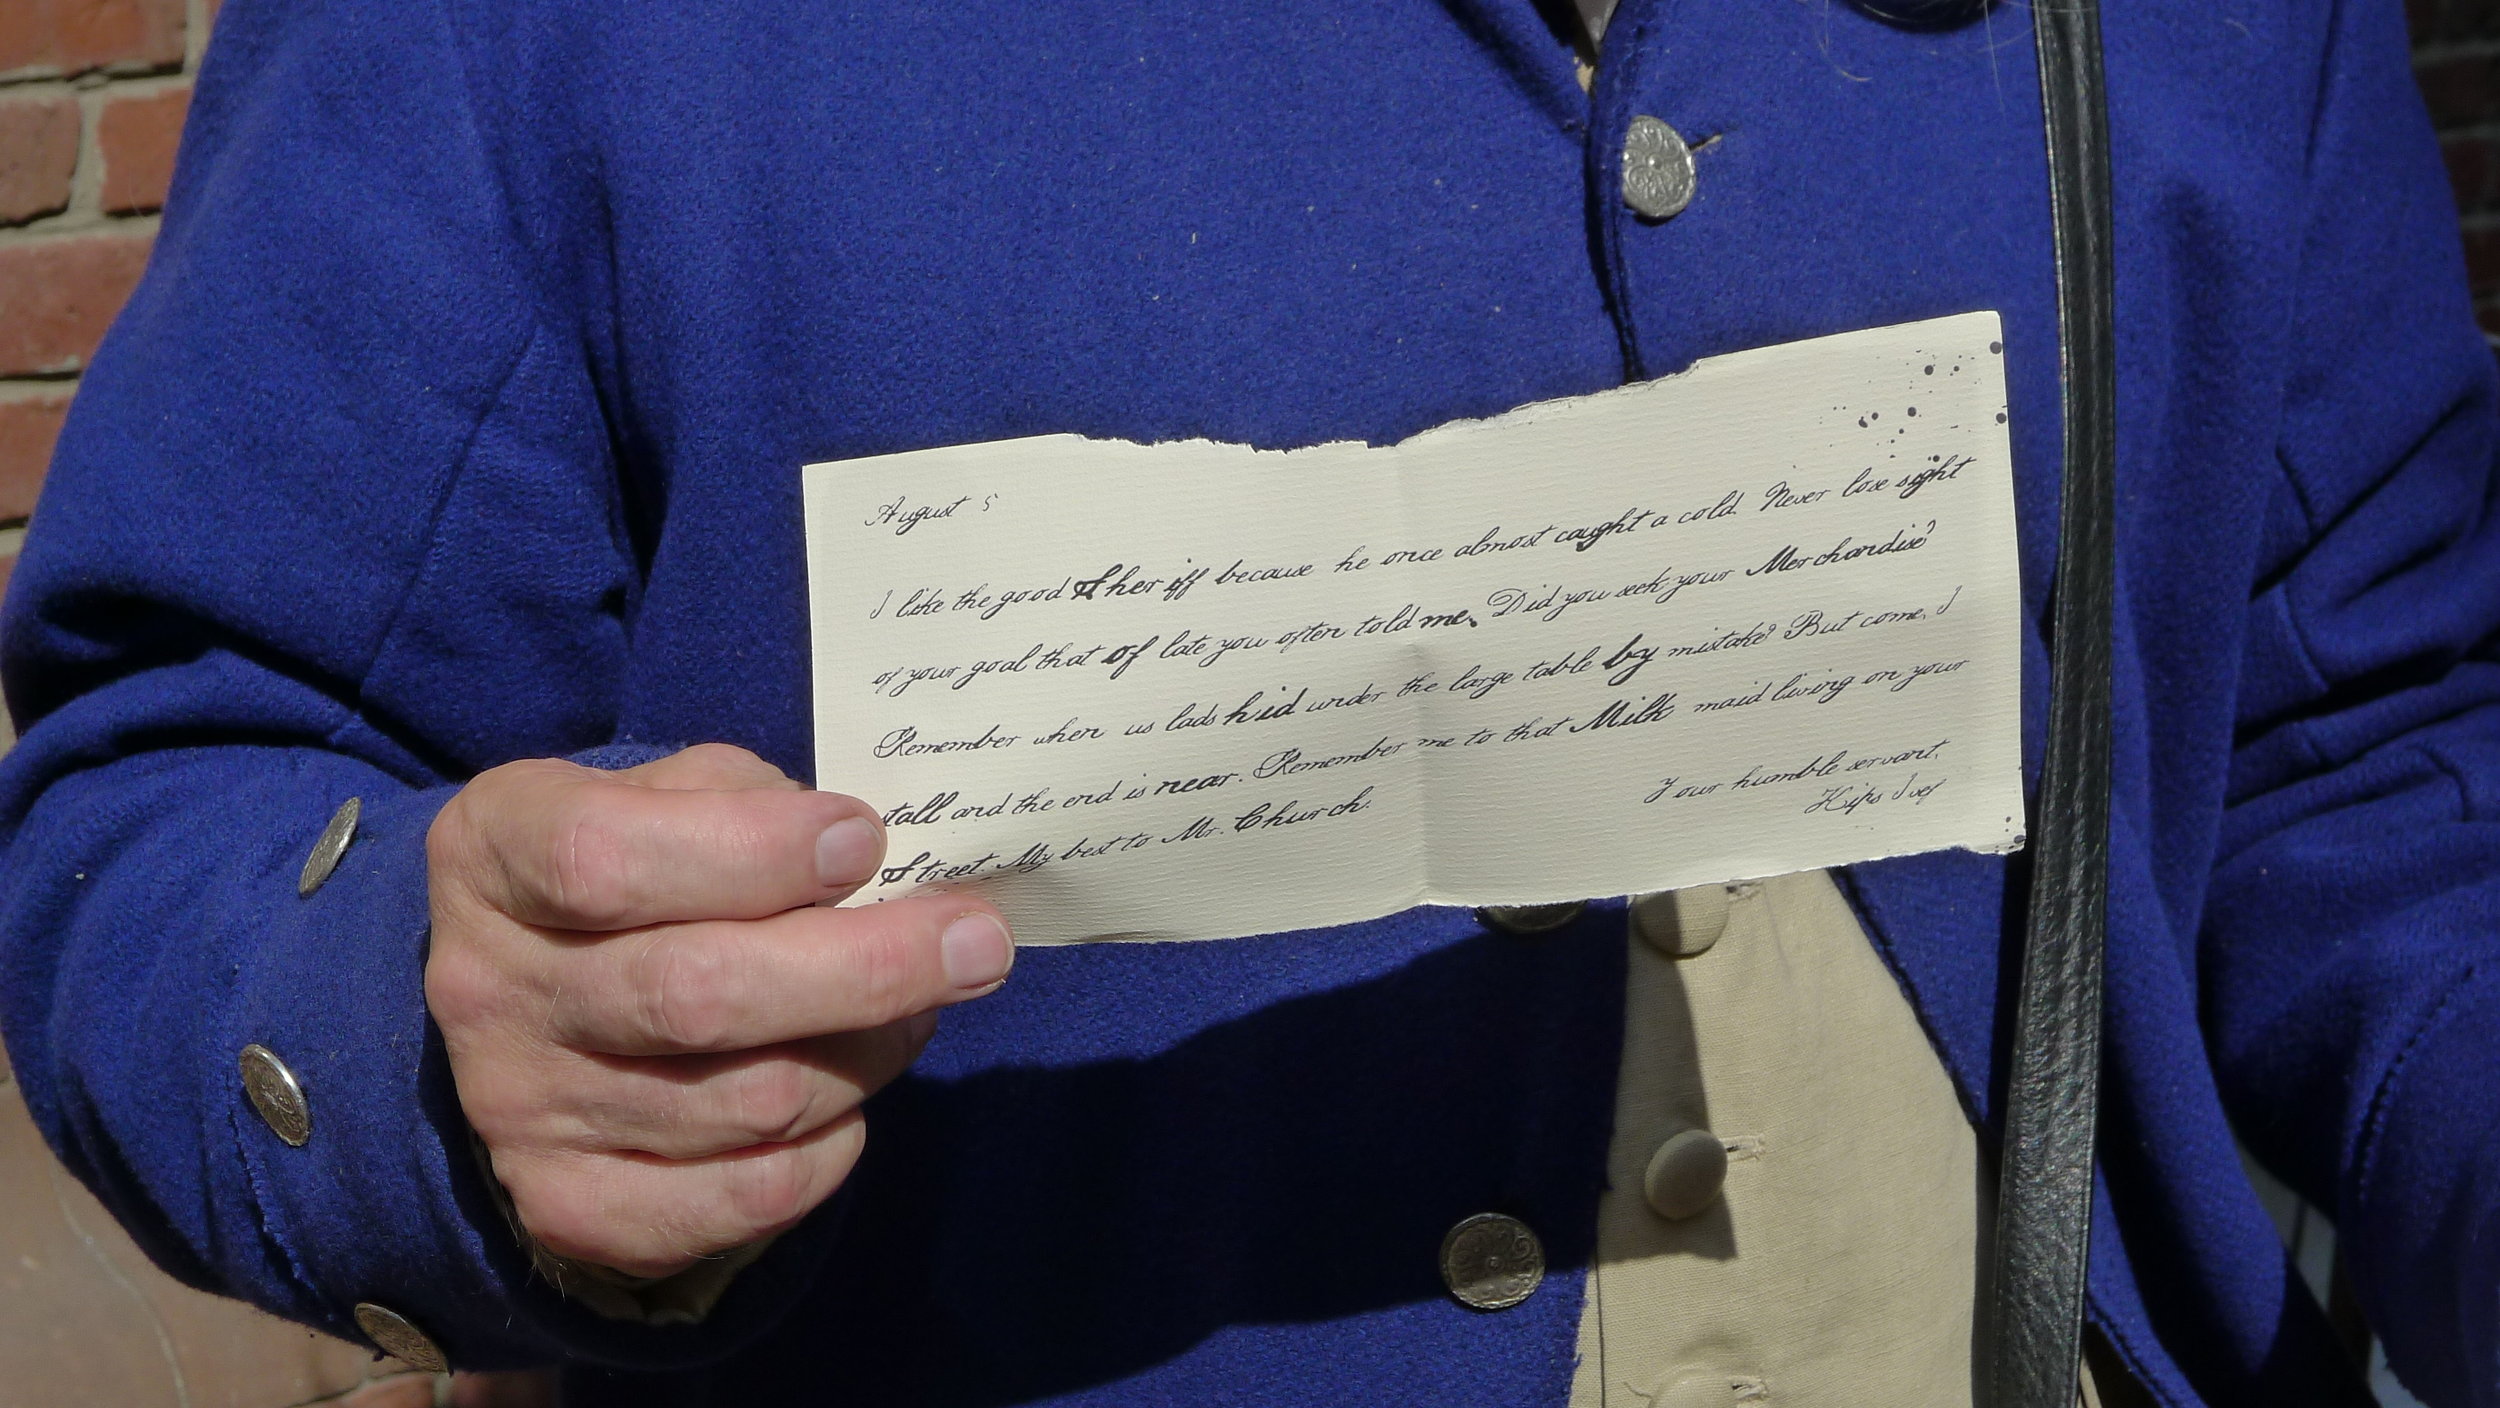 August 5
I like the good Sheriff because he once almost caught a cold. Never lose sight
of your goal that of late you often told me. Did you seek your Merchandise?
Remember when us lads hid under the large table by mistake? But come, I
stall and the end is near. Remember me to that Milk maid living on your
Street. My best to Mr. Church.
Your humble servant,